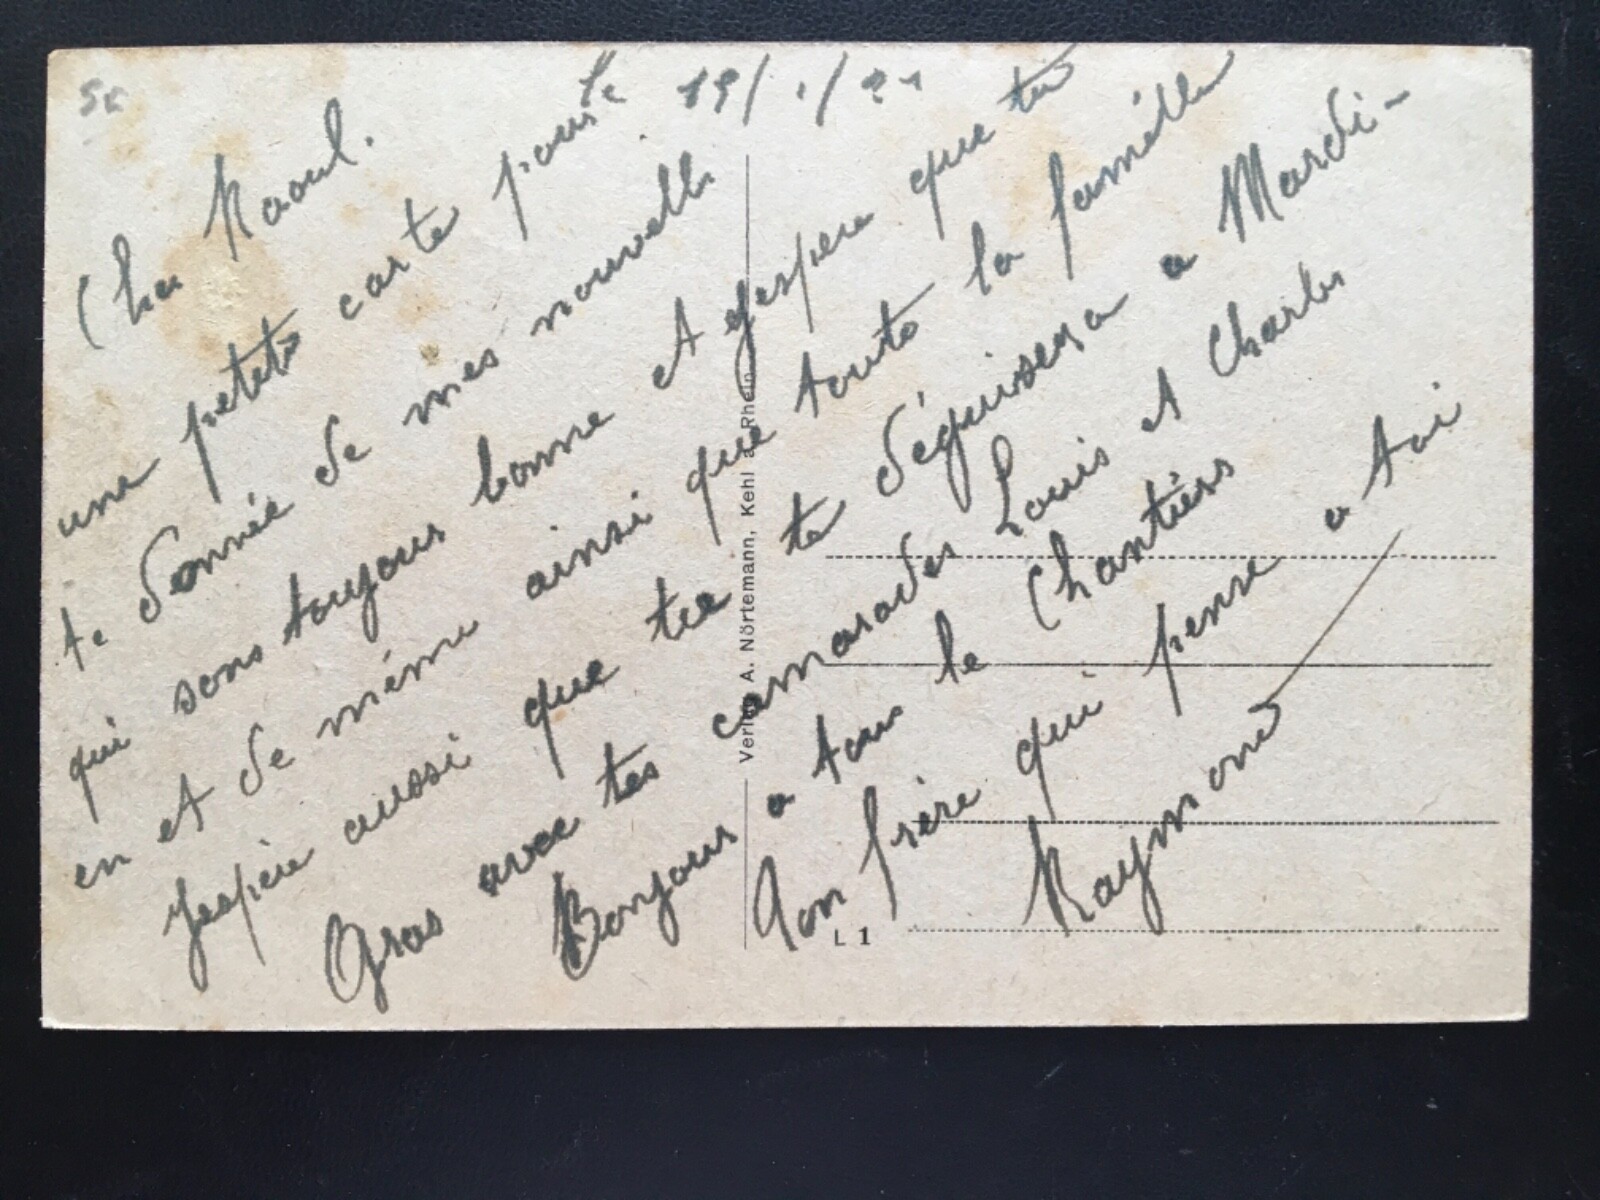 19/1/21
Cher Raoul.
une petete carte pour te
te donnée de mes nouvelle
qui sons toujous bonne et j'espere que tu
en et de mème ainsi que toute la famille
Jespère aussi que tu te déguisera a Mardi-
Gras avec tes camarades Louis et Charles
Bonjour a tous le Chantiers
Ton frère qui pense a toi
Raymond
Verlag A. Nörtemann, Kehl a. Rhein.
L 1